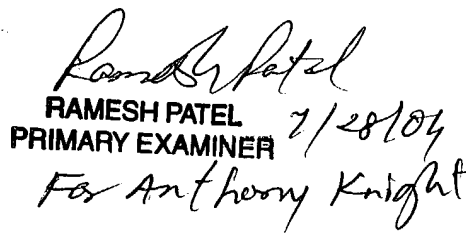 Ramesh Patel
RAMESH PATEL 7/28/04
PRIMARY EXAMINER
For Anthony Knight